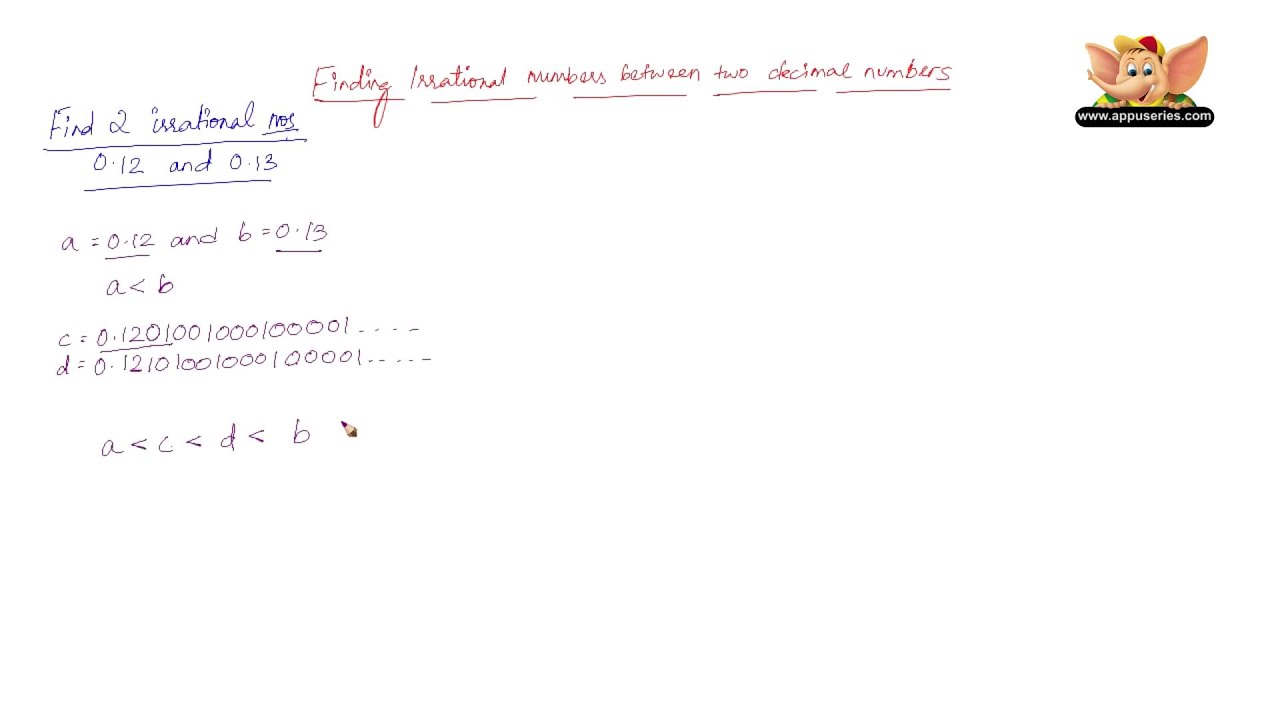 Finding Irrational numbers between two decimal numbers
www.appuseries.com
Find 2 irrational nos
0.12 and 0.13
a = 0.12 and b = 0.13
a < b
c = 0.1201001000100001.....
d = 0.12101001000100001.....
a < c < d < b